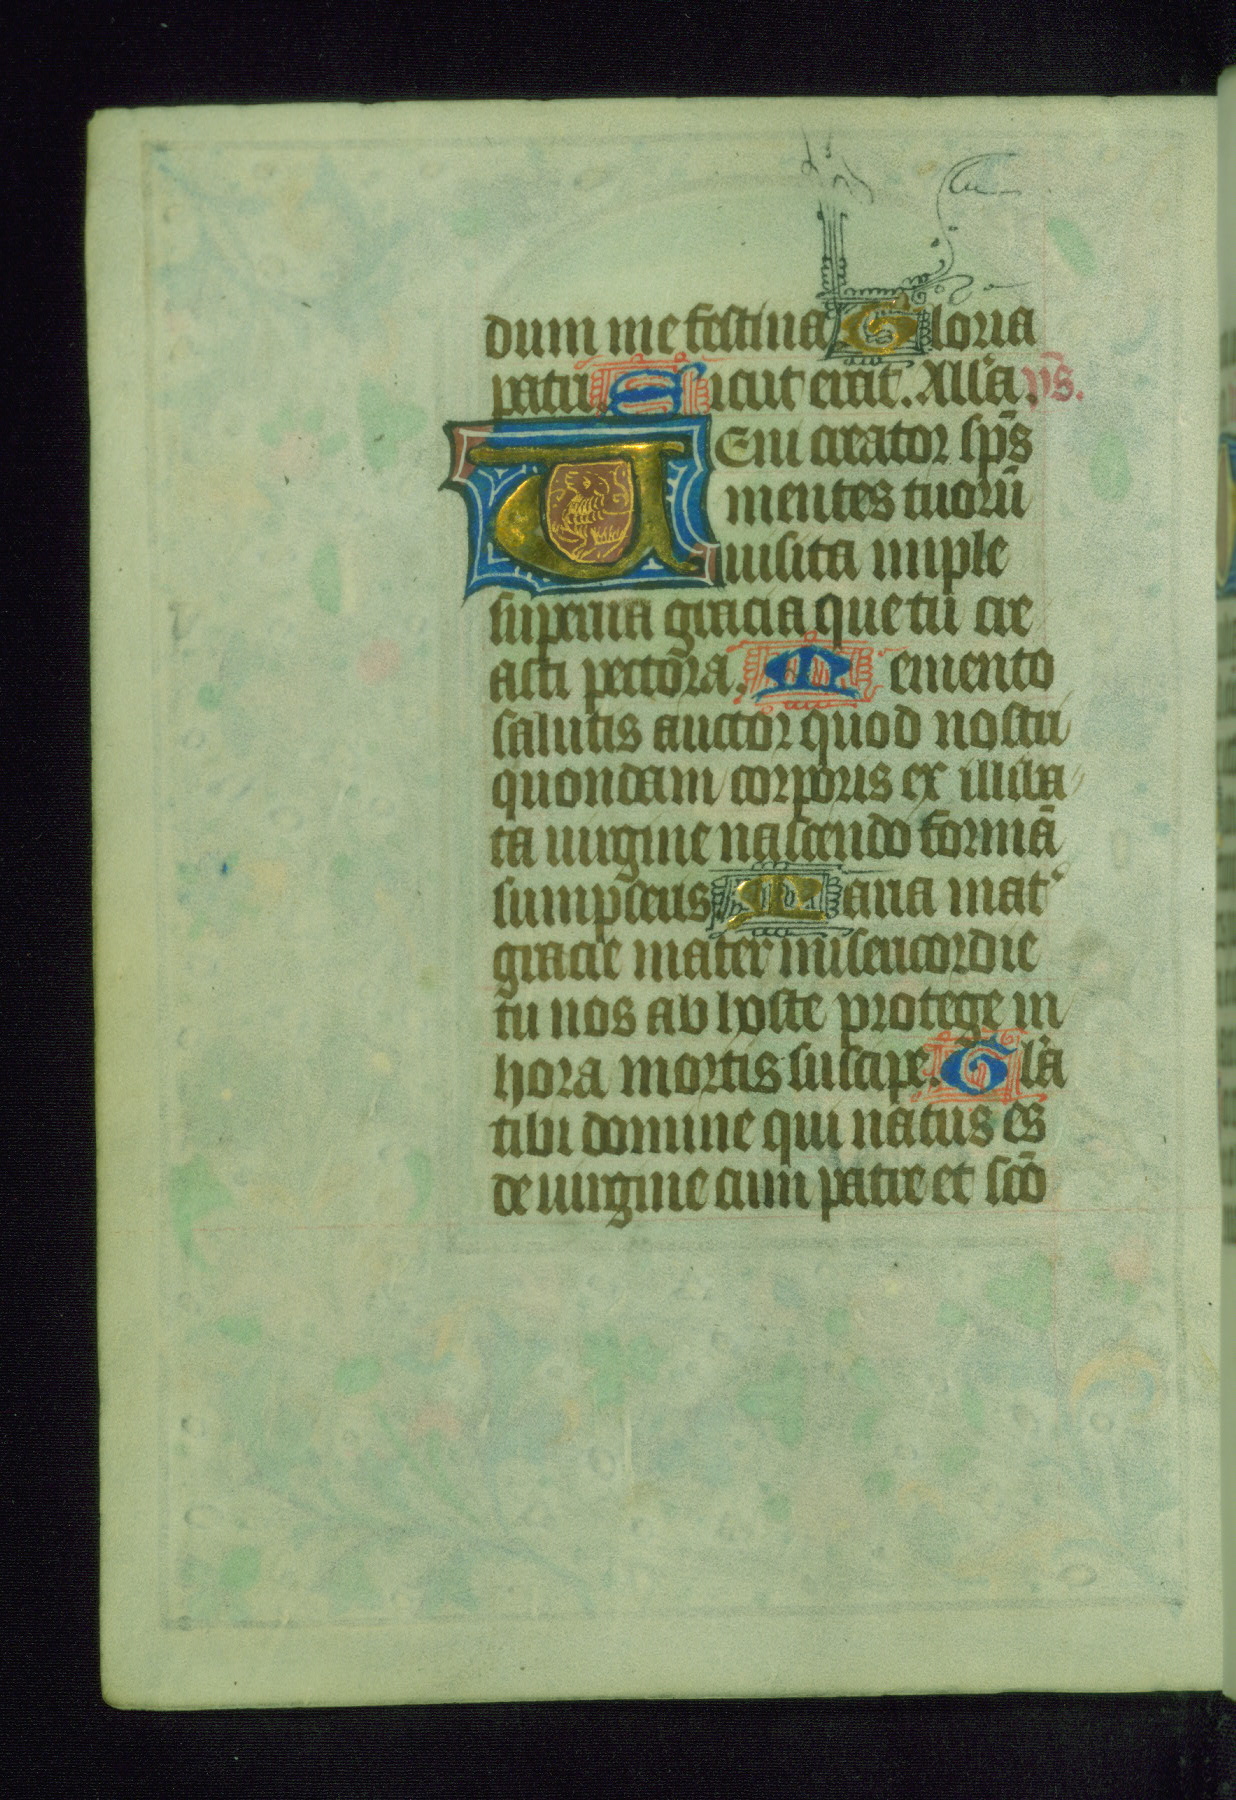 dum me festina Gloria
patri. Sicut erat. All'a. ps.
Veni creator sp̄s
mentes tuorū
uisita imple
superna gracia que tu cre
asti pectora. Memento
salutis auctor quod nostri
quondam corporis ex illiba
ta uirgine nascendo formā
sumpseris Maria mat'
gracie mater misericordie
tu nos ab hoste protege in
hora mortis suscipe. Gl'a
tibi domine qui natus es
de uirgine cum patre et scō